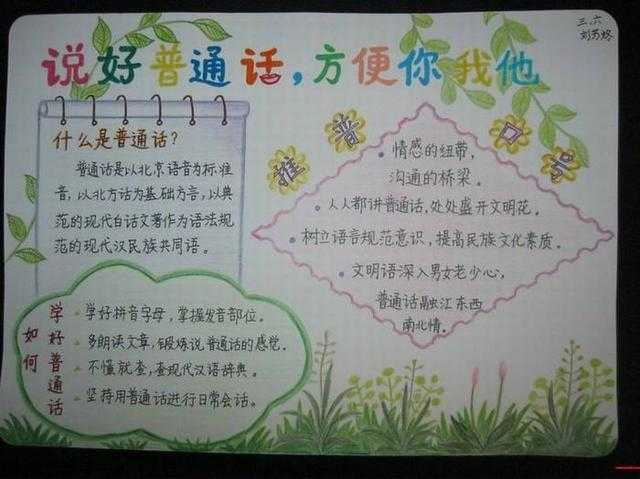 三.六
说好普通话,方便你我他
什么是普通话?
普通话是以北京语音为标准
音,以北方话为基础方言,以典
范的现代白话文著作为语法规
范的现代汉民族共同语。
推普口号
情感的纽带,
沟通的桥梁。
人人都讲普通话,处处盛开文明花。
树立语言规范意识,提高民族文化素质。
文明语深入男女老少心,
普通话融江东西
南北情。
如何
学好普通话
学好拼音字母,掌握发音部位。
多朗读文章,锻炼说普通话的感觉。
不懂就查,查现代汉语辞典。
坚持用普通话进行日常会话。